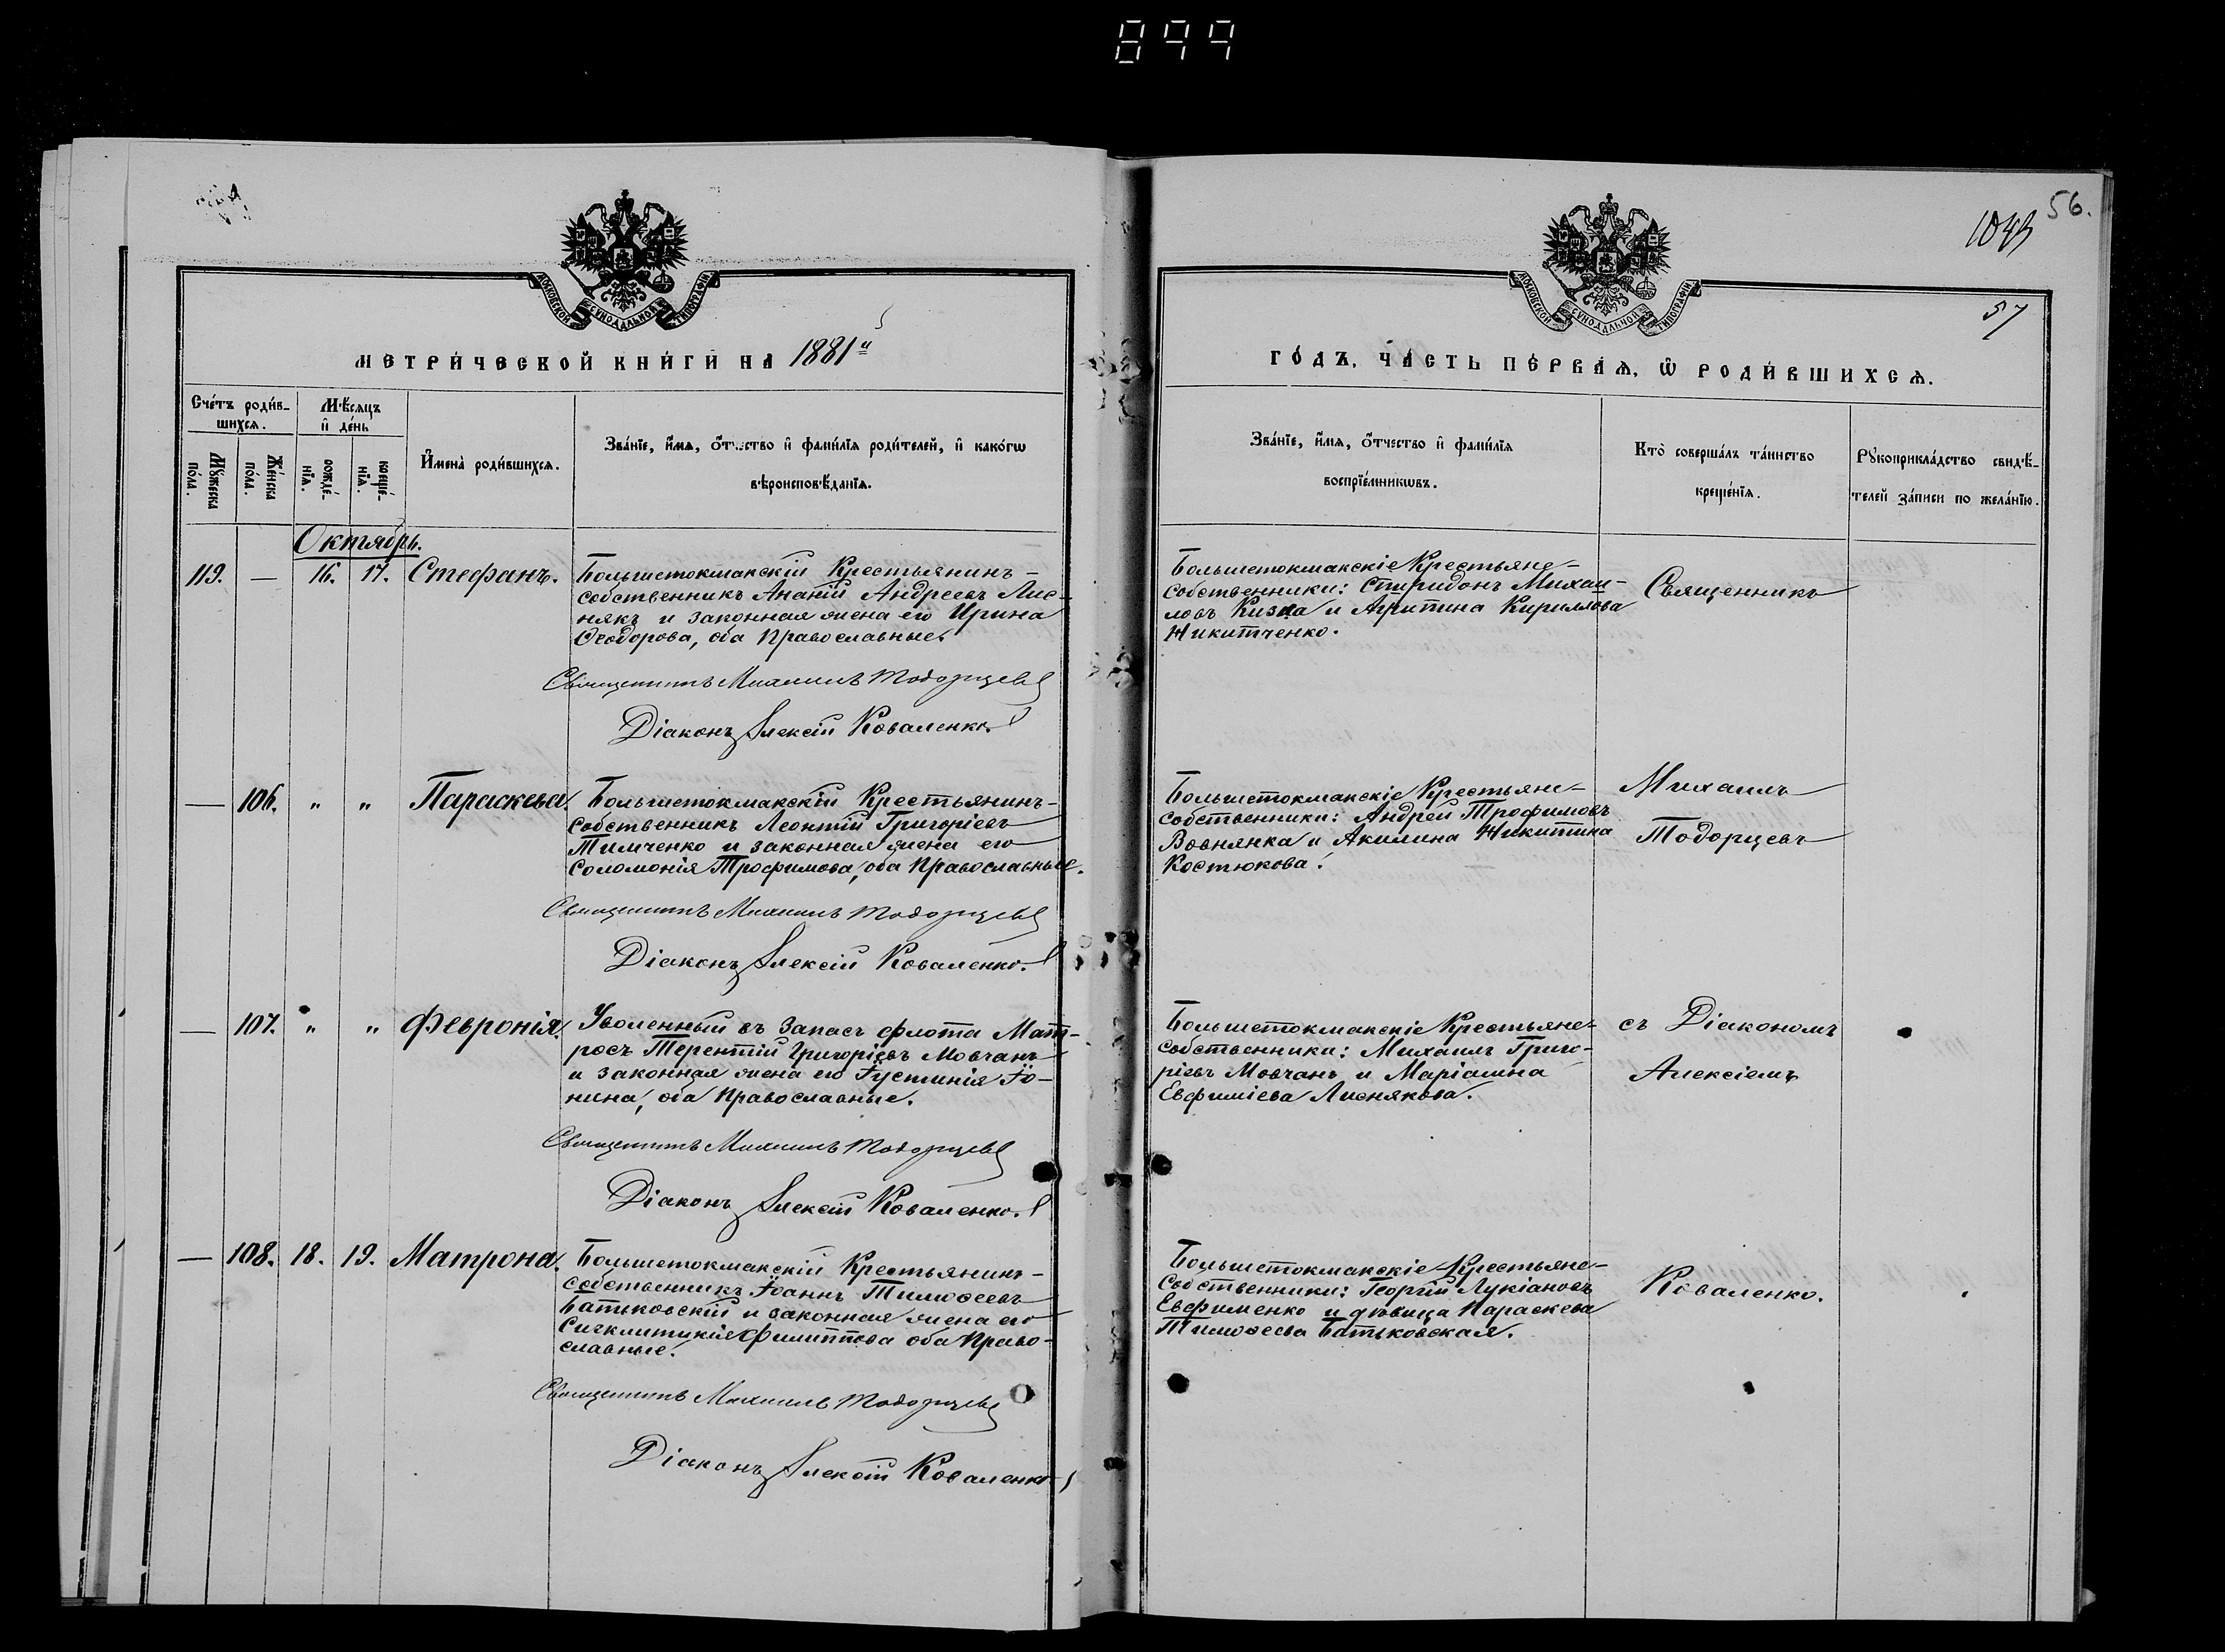 899
56.
57
МОСКОВСКОЙ СУНОДАЛЬНОЙ ТИПОГРАФІИ
МОСКОВСКОЙ СУНОДАЛЬНОЙ ТИПОГРАФІИ
МЕТРИ́ЧЕСКОЙ КНИ́ГИ НА 1881й
ГО́ДЪ, ЧА́СТЬ ПЕ́РВАѦ, Ѡ РОДИ́ВШИХСѦ.
Сче́тъ роди́в-
шихсѧ.
Мѣ́сяцъ
и҆ де́нь
Мꙋ́жеска
по́ла.
Же́нска
по́ла.
рожде́-
нїѧ.
креще́-
нїѧ.
И҆мена̀ роди́вшихсѧ.
Зва́нїе, и҆́мѧ, ѻ҆́тчество и҆ фами́лїѧ роди́телей, и҆ како́гѡ
вѣроисповѣ́данїѧ.
Зва́нїе, и҆́мѧ, ѻ҆́тчество и҆ фами́лїѧ
воспрїе́мникѡвъ.
Кто̀ соверша́лъ та́инство
креще́нїѧ.
Рꙋкоприкла́дство свидѣ́-
телей за́писи по жела́нїю.
Октябрь.
119. — 16. 17. Стефанъ.
Большетокмакскій Крестьянинъ-
собственникъ Ананій Андреевъ Лис-
някъ и законная жена его Ирина
Ѳеодорова, оба Православные.
Священникъ Михаилъ Тодорцевъ
Діаконъ Алексій Коваленко.
Большетокмакскіе Крестьяне-
собственники: Спиридонъ Михаи-
ловъ Кизка и Агрипина Кириллова
Никитченко.
Священникъ
— 106. " " Параскева.
Большетокмакскій Крестьянинъ-
собственникъ Леонтій Григоріевъ
Тимченко и законная жена его
Соломонія Трофимова, оба Православные.
Священникъ Михаилъ Тодорцевъ
Діаконъ Алексій Коваленко.
Большетокмакскіе Крестьяне-
собственники: Андрей Трофимовъ
Вовнянка и Акилина Никитина
Костюкова.
Михаилъ
Тодорцевъ
— 107. " " Февронія.
Уволенный въ Запасъ флота Мат-
росъ Терентій Григоріевъ Мовчанъ
и законная жена его Іустинія Іо-
нина, оба Православные.
Священникъ Михаилъ Тодорцевъ
Діаконъ Алексій Коваленко.
Большетокмакскіе Крестьяне-
собственники: Михаилъ Григо-
ріевъ Мовчанъ и Маріамна
Евфиміева Лиснякова.
съ Діакономъ
Алексіемъ
— 108. 18. 19. Матрона.
Большетокмакскій Крестьянинъ-
собственникъ Іоаннъ Тимоѳеевъ
Батьковскій и законная жена его
Сигклитикія Филиппова оба Право-
славные.
Священникъ Михаилъ Тодорцевъ
Діаконъ Алексій Коваленко
Большетокмакскіе Крестьяне-
Собственники: Георгій Лукіановъ
Евфименко и дѣвица Параскева
Тимоѳеева Батьковская.
Коваленко.